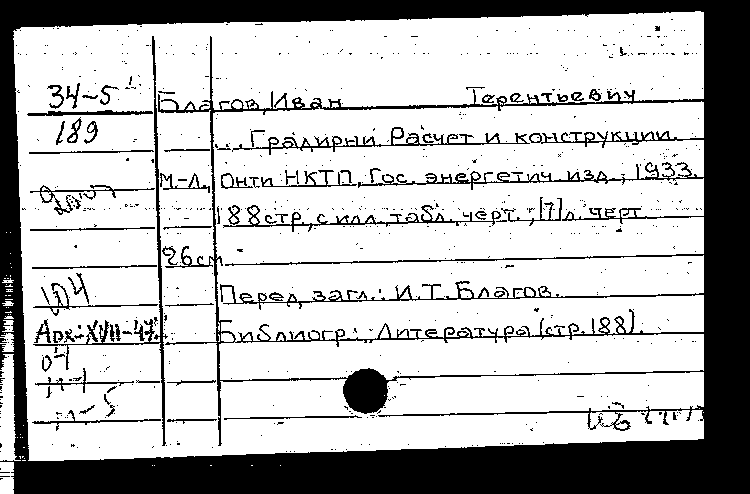 34-5 Благов, Иван Терентьевич
189 ... Градирни. Расчет и конструкции.
М.-Л., Онти НКТП, Гос. энергетич. изд., 1933.
188 стр., с илл., табл., черт.; [7] л. черт.
26 см.
Перед загл.: И.Т. Благов.
Арх: XVII-47. Библиогр.: "Литература" (стр. 188).
04